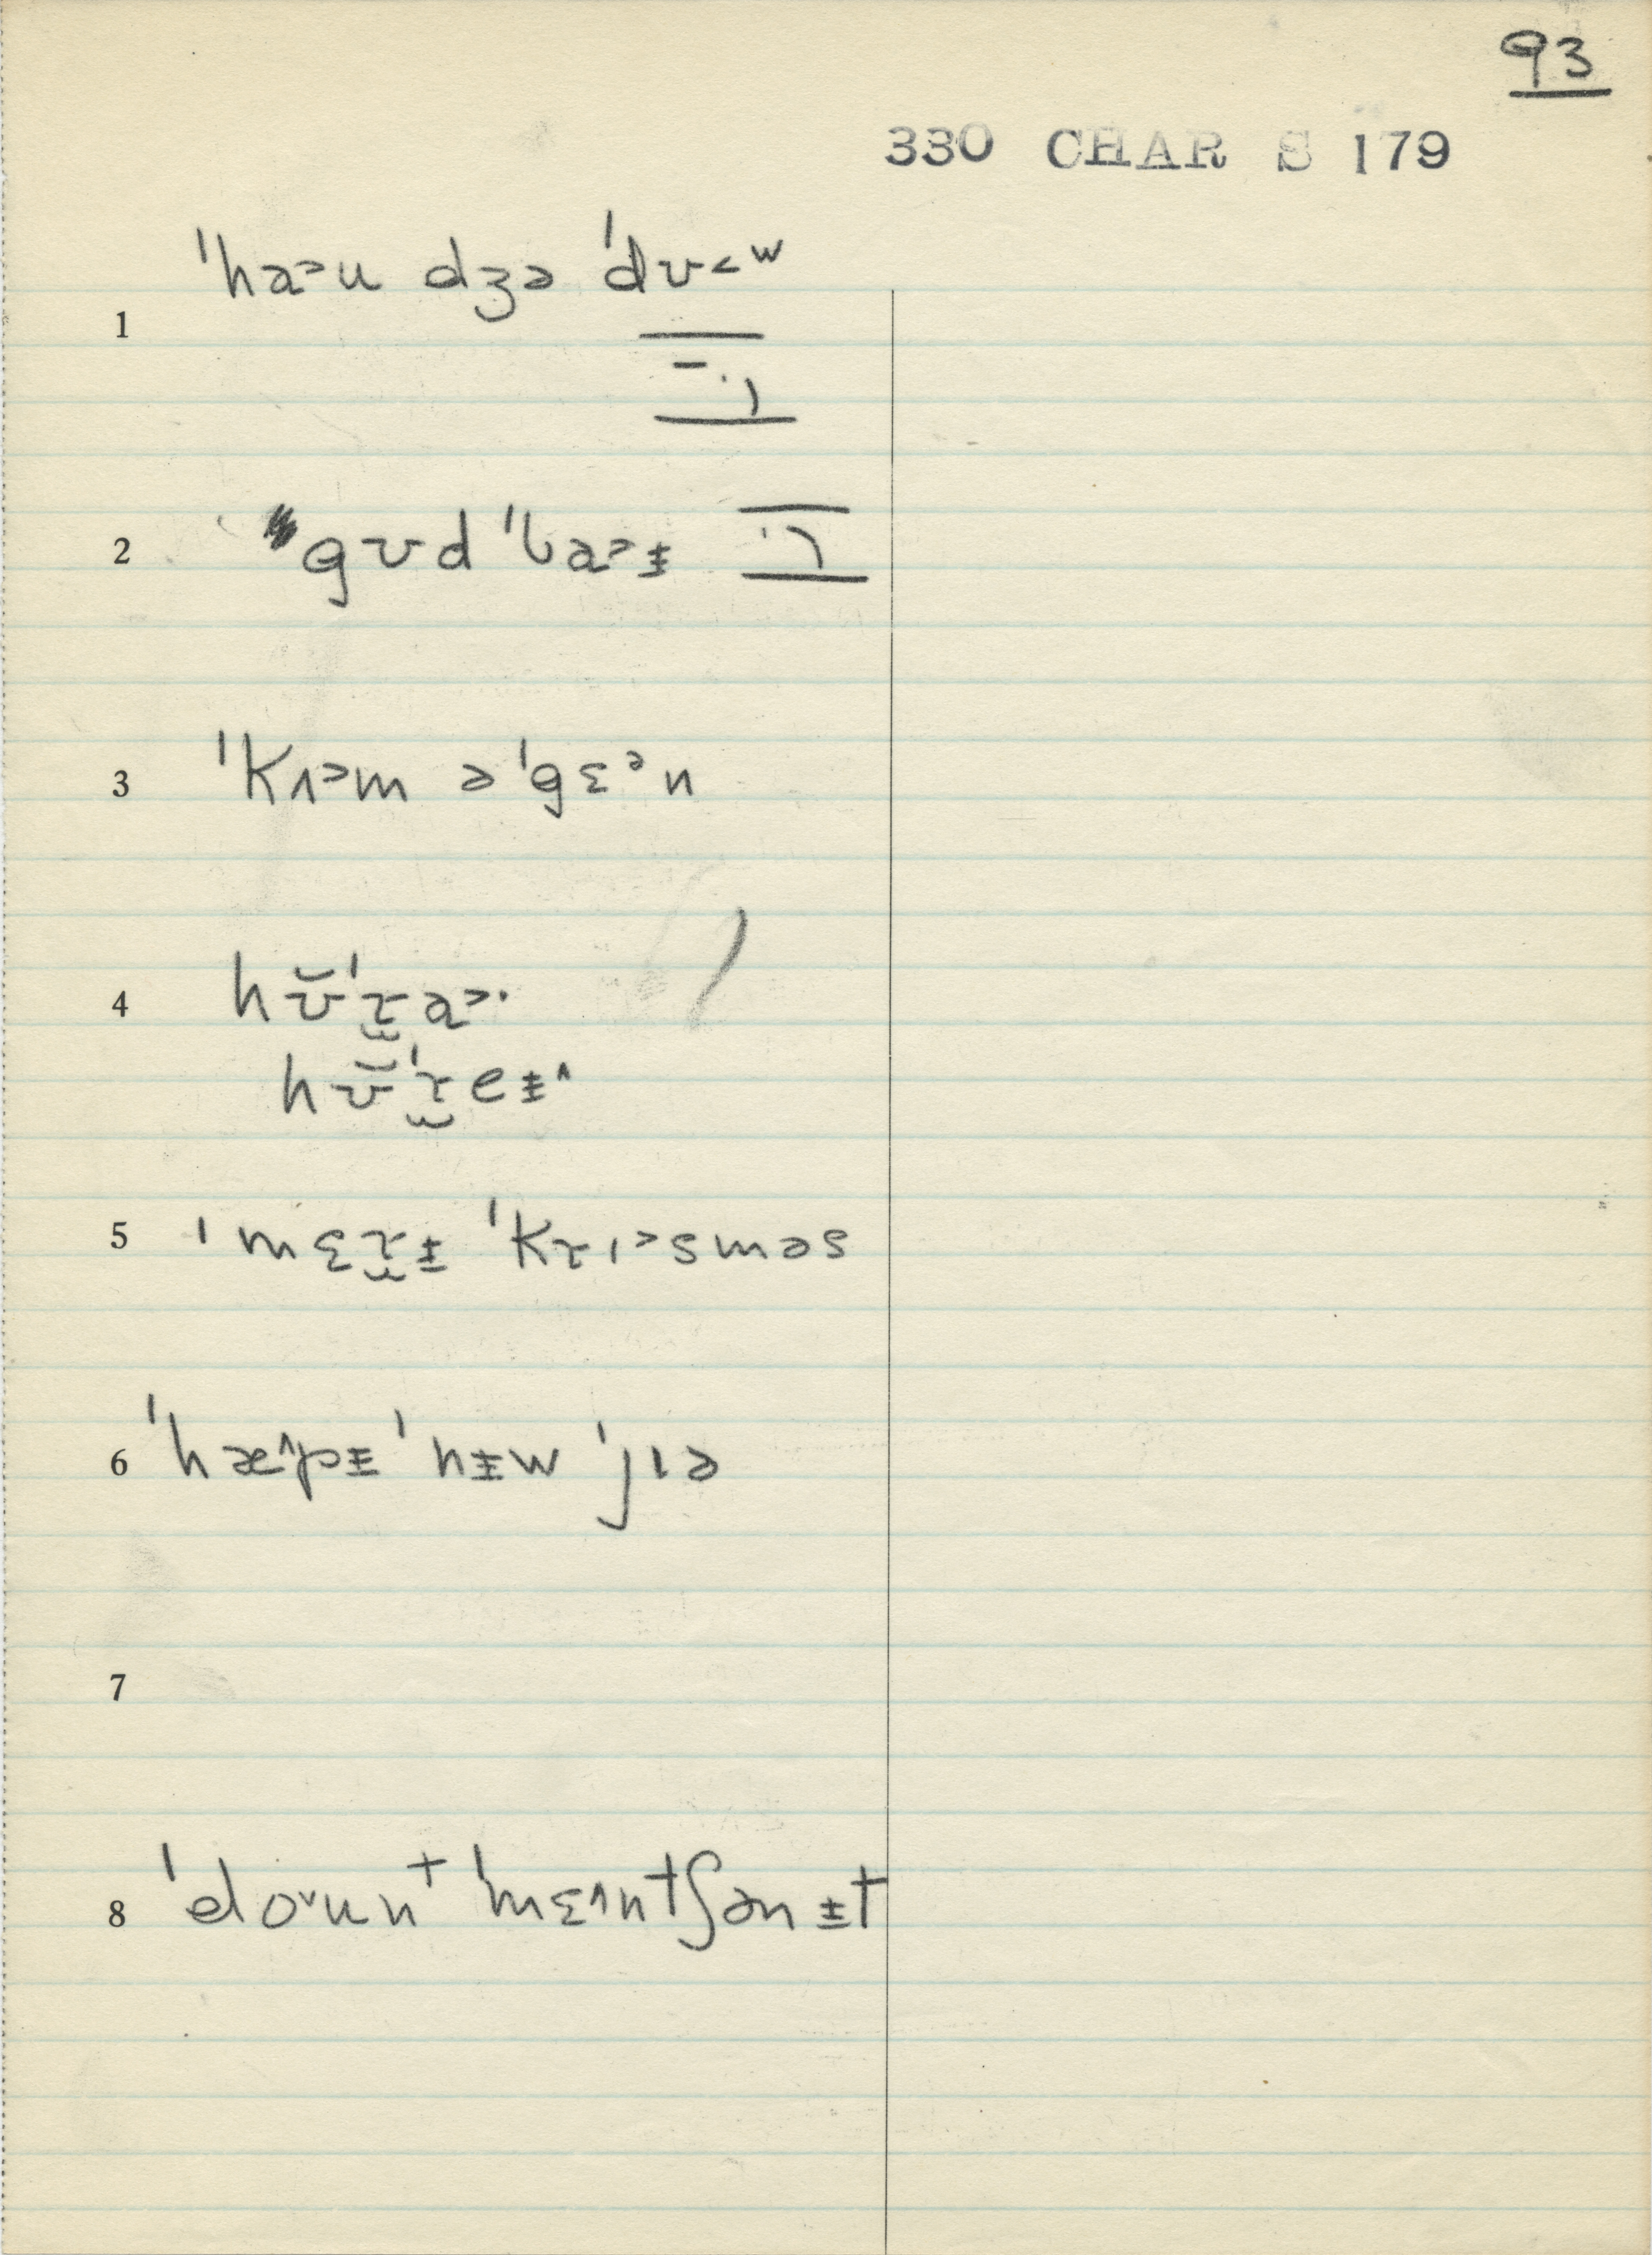 93
330 CHAR S 179
1 ˈha˃u dʒə ˈdʊ˂ʷ
2 gʊd ˈba˃ɨ
3 ˈkʌ˃m əˈgɛᵊn
4 hʊ̆ˈɾa˃·
hʊ̆ˈɾeɨ˄
5 ˈmɛɾɨ ˈkɾɪ˃sməs
6 ˈhæ˄pɨ ˈnɨw ˈjɪə
7
8 ˈdo˅unᵗ ˈmɛ˄ntʃənɨt